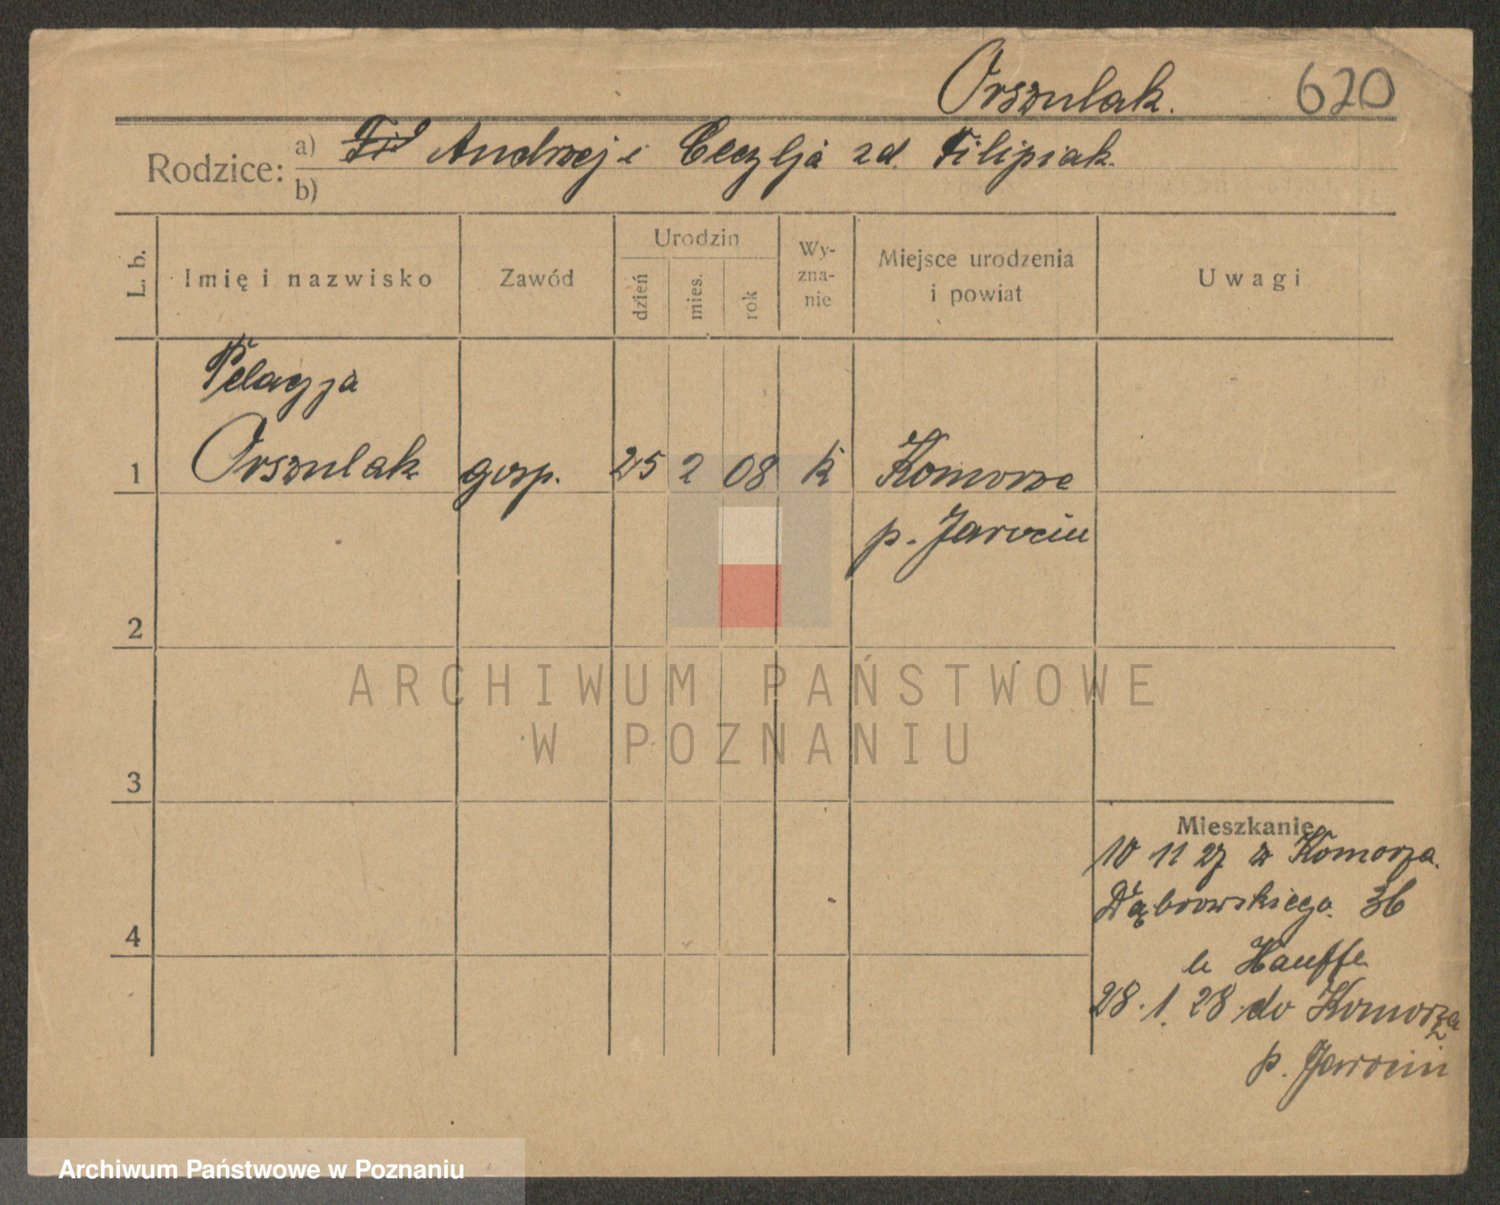 Orszulak. 620
Rodzice: a) Andrzej i Cecylja zd. Filipiak
b)
L. b. Imię i nazwisko Zawód Urodzin dzień mies. rok Wyznanie Miejsce urodzenia i powiat Uwagi
Pelagja
1 Orszulak gosp. 25 2 08 k Komorze
p. Jarocin
2
ARCHIWUM PAŃSTWOWE
W POZNANIU
3
Mieszkanie
10 11 27 z Komorza.
Dąbrowskiego. 36
4
u Hauffe
28. 1. 28 do Komorza
p. Jarocin
Archiwum Państwowe w Poznaniu